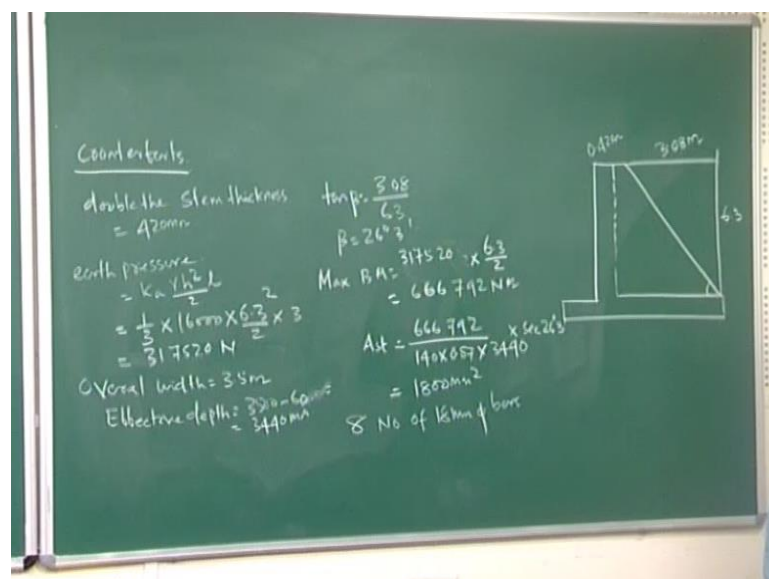 Counterforts.
double the stem thickness
= 420mm
earth pressure
= Ka γh²/2 l
= 1/3 × 16000 × 6.3²/2 × 3
= 317520 N
Overal width = 3.5m
Effective depth = 3500-60
= 3440mm
tanβ = 3.08/6.3
β = 26°3'
Max BM = 317520 × 6.3/2
= 666792 Nm
Ast = 666792/140×0.87×3440 × sec26°3'
= 1800mm²
8 No of 18mm ϕ bars
0.42m
3.08m
6.3